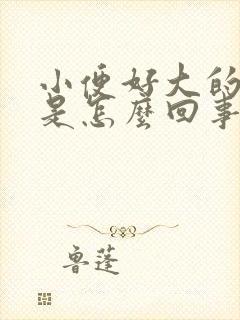 小便好大的
是怎麼回事
鲁蓬